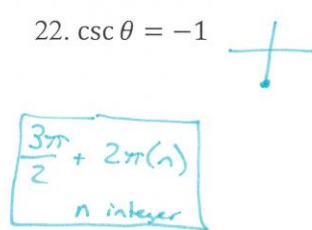 22. csc θ = −1
3π/2 + 2π(n)
n integer